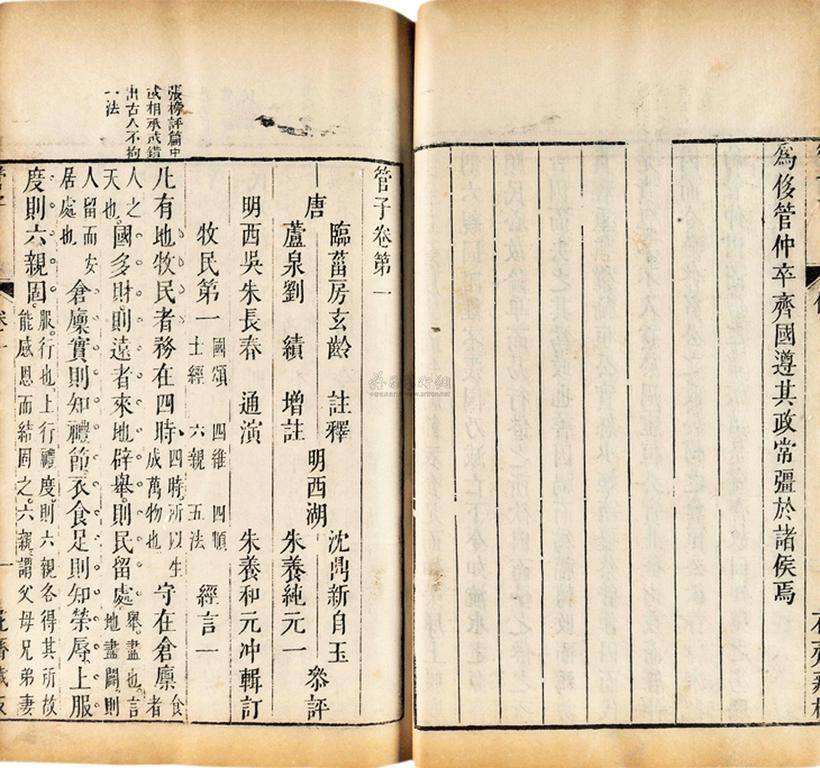 爲侈管仲卒齊國遵其政常彊於諸侯焉
管子卷第一
唐 臨菑房玄齡 註釋
蘆泉劉 績 增註
明西湖 沈鼎新自玉 朱養純元一 叅評
明西吳朱長春 通演 朱養和元冲輯訂
牧民第一 國頌 四維 四順 士經 六親 五法 經言一
凡有地牧民者務在四時四時所以生成萬物也守在倉廩食者
人之天也國多財則遠者來地辟舉則民留處舉盡也言地盡闢則
人留而安居處也倉廩實則知禮節衣食足則知榮辱上服
度則六親固服行也上行禮度則六親各得其所故能感恩而結固之六親謂父母兄弟妻
張榜評篇中
或相承或錯
出古人不拘
一法